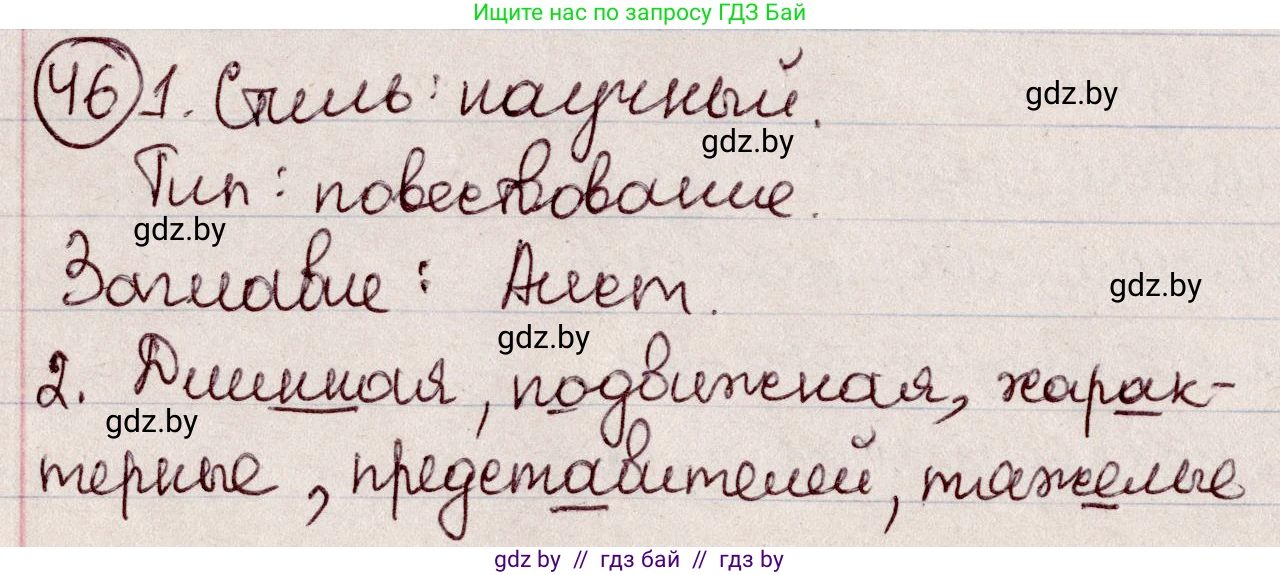 Ищите нас по запросу ГДЗ Бай
46 1. Стиль: научный. gdz.by
gdz.by
Тип: повествование.
gdz.by
Заглавие: Аист. gdz.by
gdz.by
2. Длинная, подвижная, харак-
gdz.by
терные, представителей, тяжелые
gdz by // гдз бай // гдз by